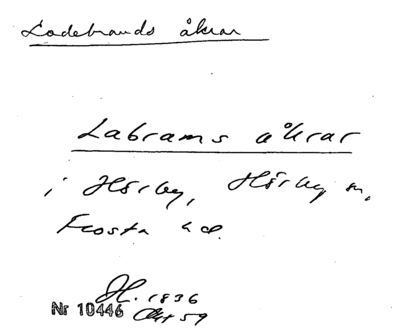 Ladebrands åkrar
Labrams åkrar
i Hörby, Hörby sn,
Frosta hd.
H. 1836
Nr 10446 Akt 59